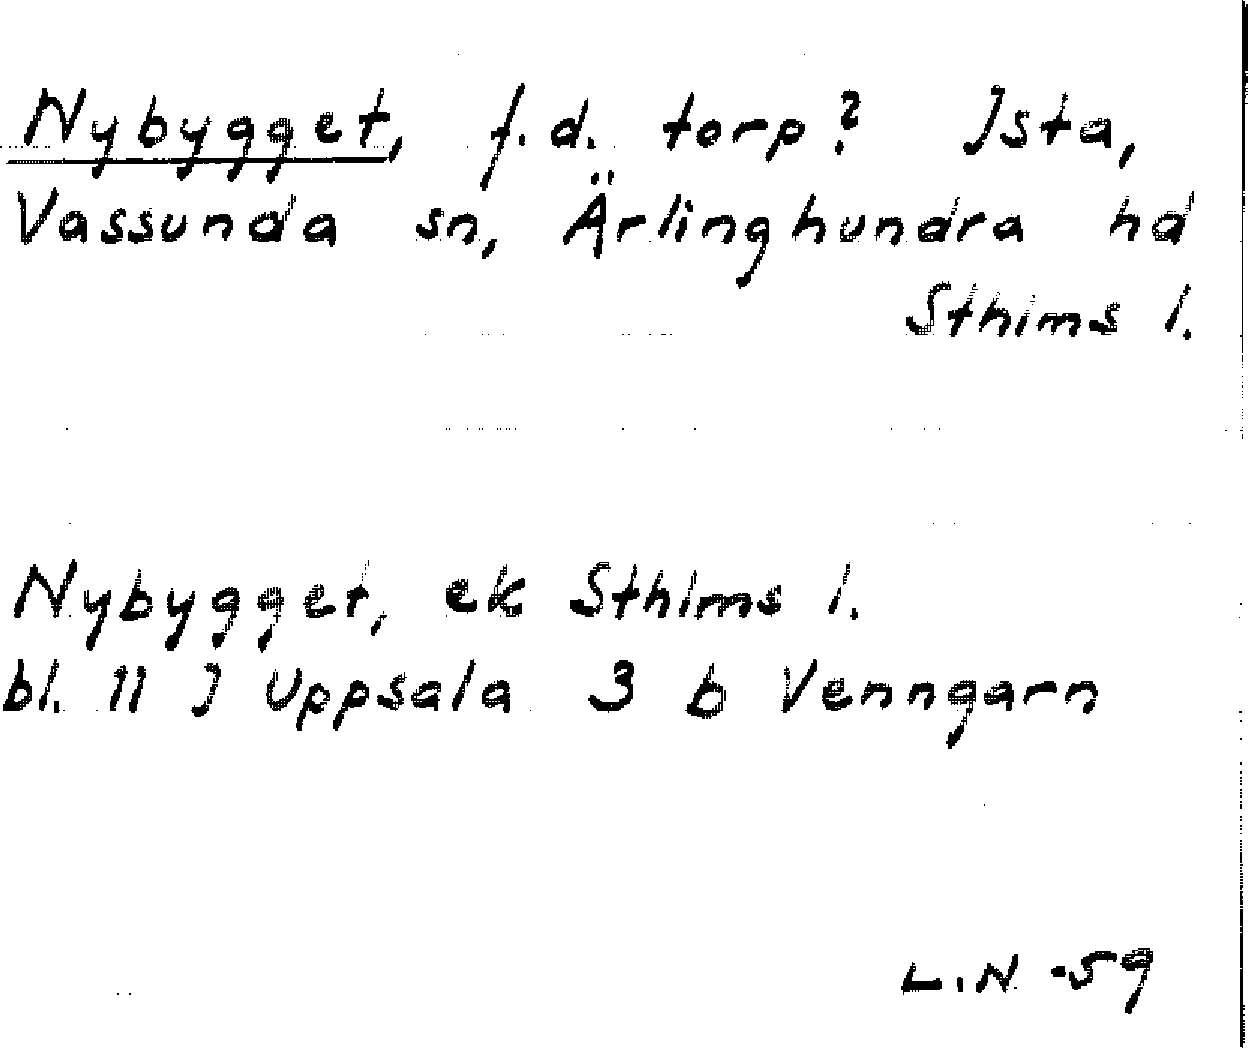 Nybygget, f.d. torp? Ista,
Vassunda sn, Ärlinghundra hd
Sthlms l.
Nybygget, ek Sthlms l.
bl. 11 J Uppsala 3 b Venngarn
L.N -59